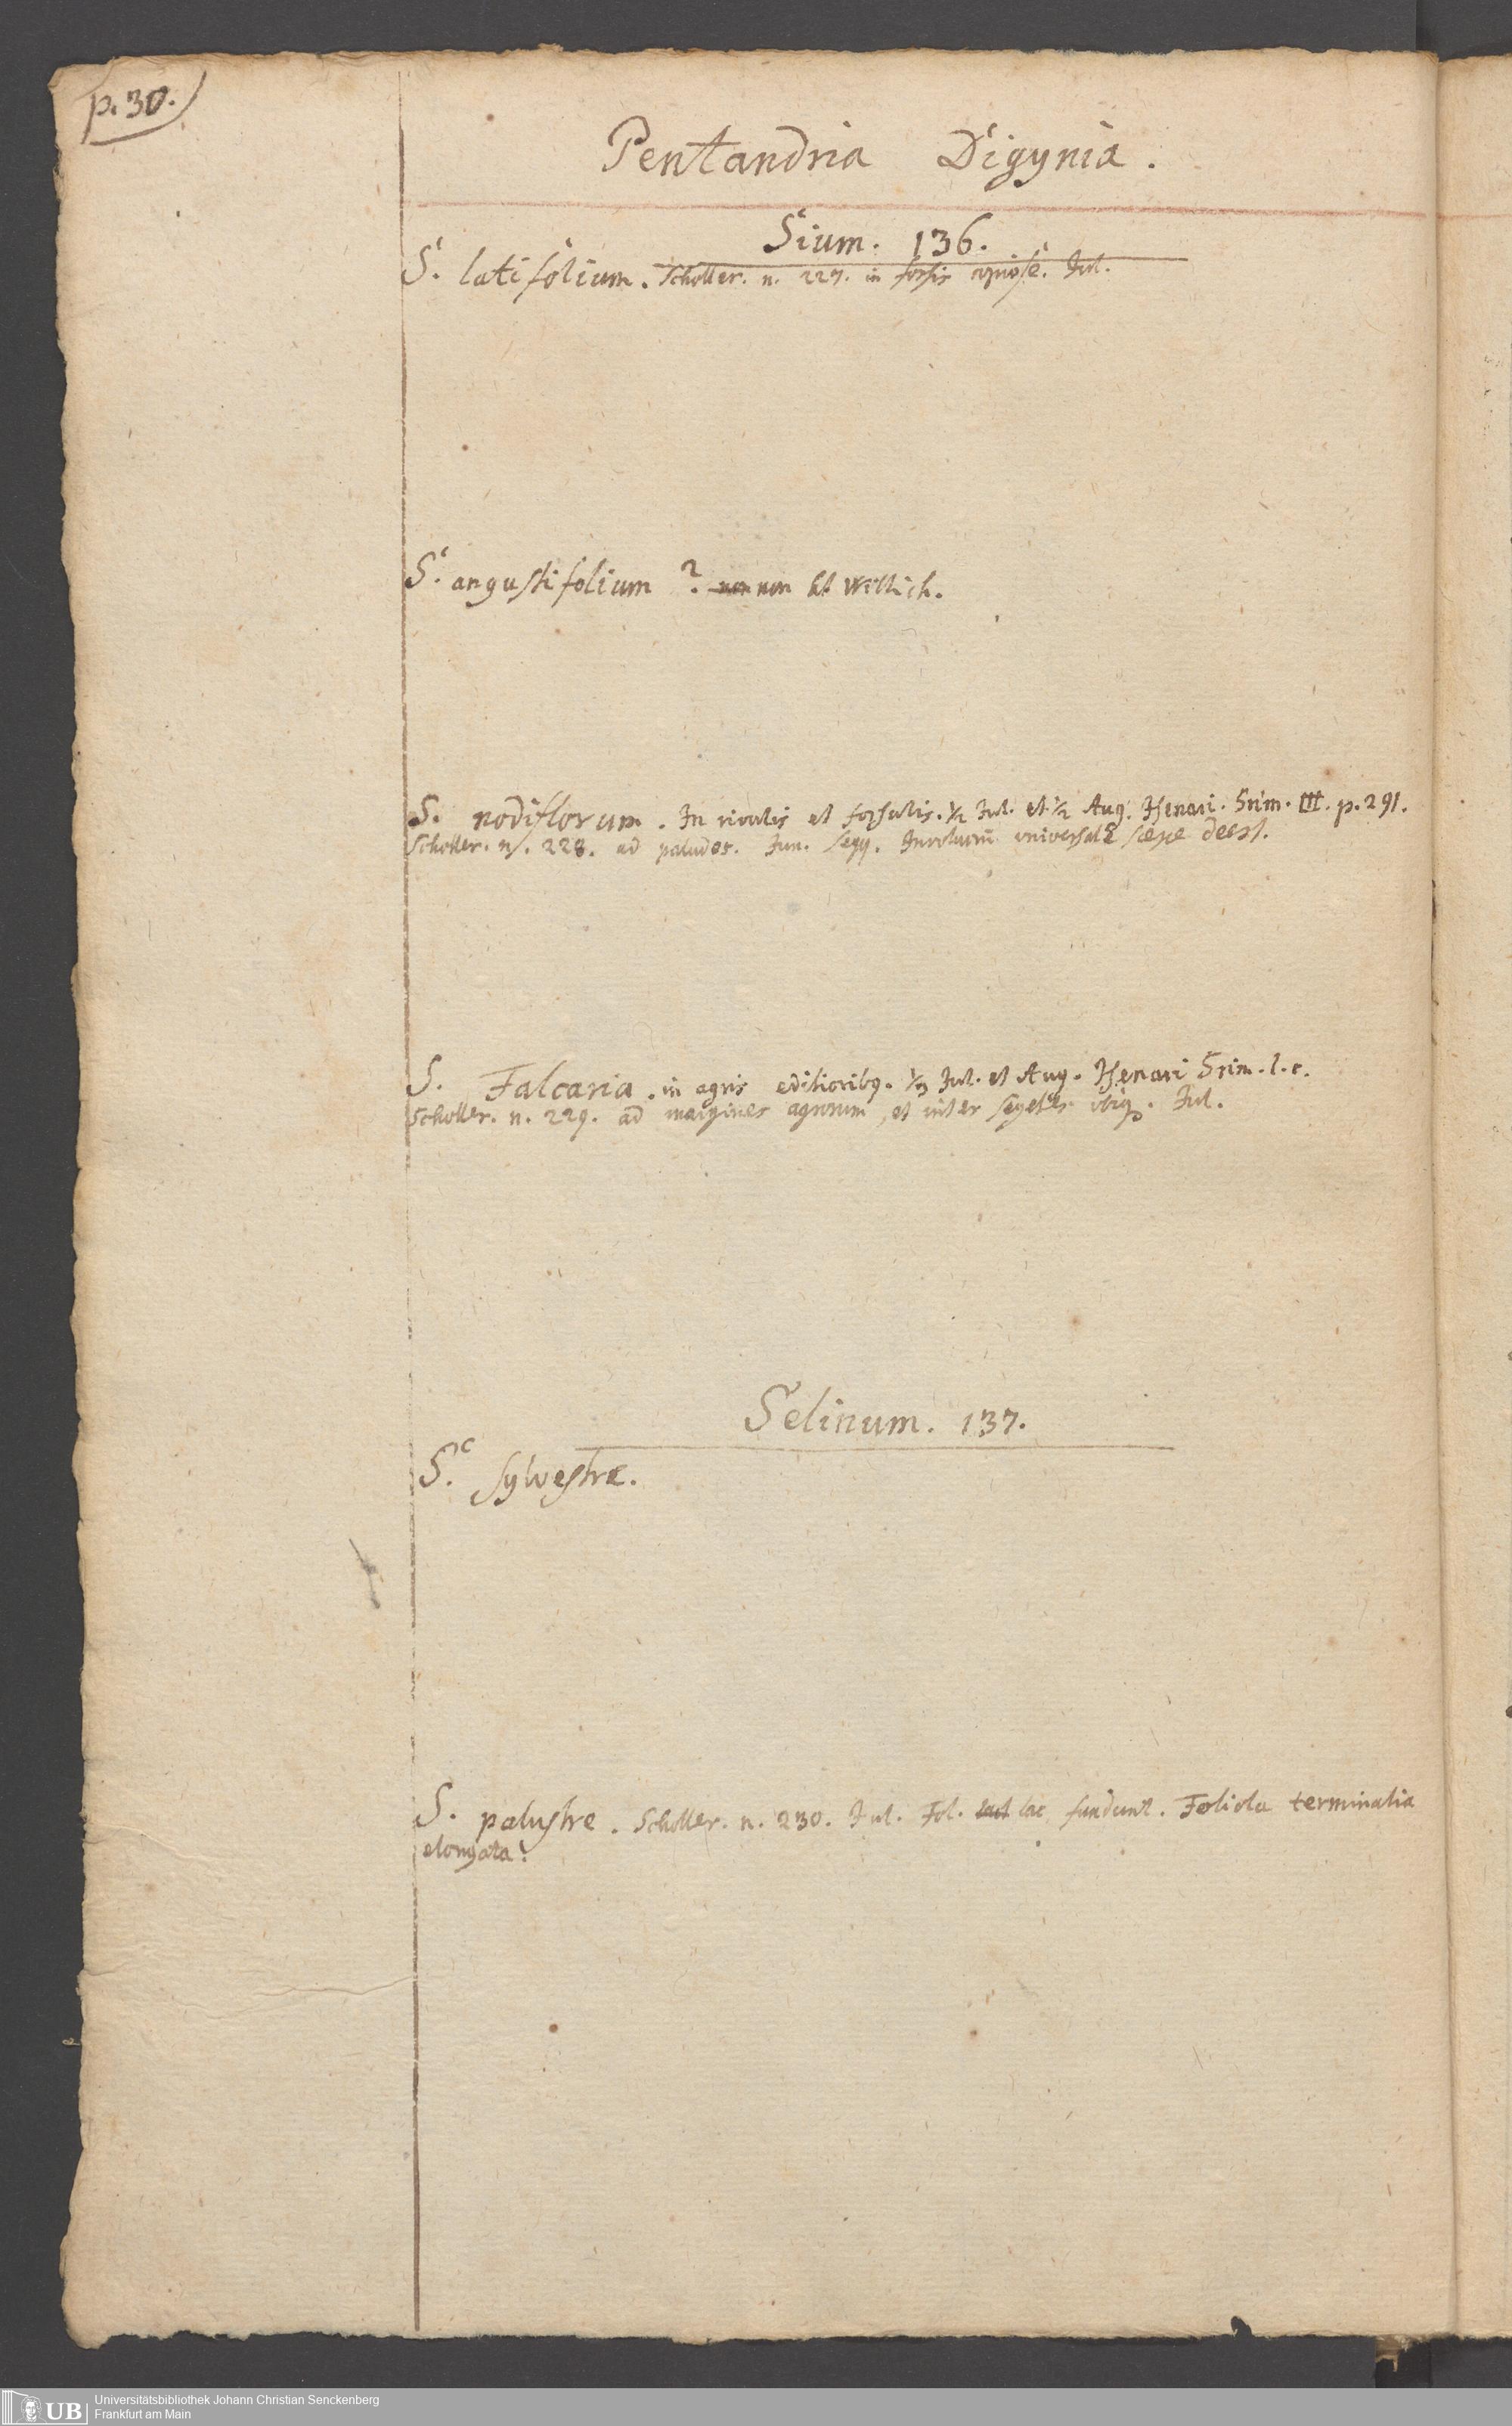 p. 30.
Pentandria Digynia.
Sium. 136.
S. latifolium. Scholler. n. 227. in fossis copiose. Jul.
S. angustifolium ? non non Wittich.
S. nodiflorum. In rivulis et fossulis. ½ Jul. et ½ Aug. Jsenaci. Grim. III. p. 291.
Scholler. n. 228. ad paludes. Jun. seqq. Involucrū universale sæpe deest.
S. Falcaria. in agris editioribq. ½ Jul. et Aug. Jsenaci Grim. l. c.
Scholler. n. 229. ad margines agrorum, et inter segetes ubiq. Jul.
Selinum. 137.
S. sylvestre.
S. palustre. Scholler. n. 230. Jul. Fol. lac fundunt. Foliola terminalia
elongata!
UB
Universitätsbibliothek Johann Christian Senckenberg
Frankfurt am Main